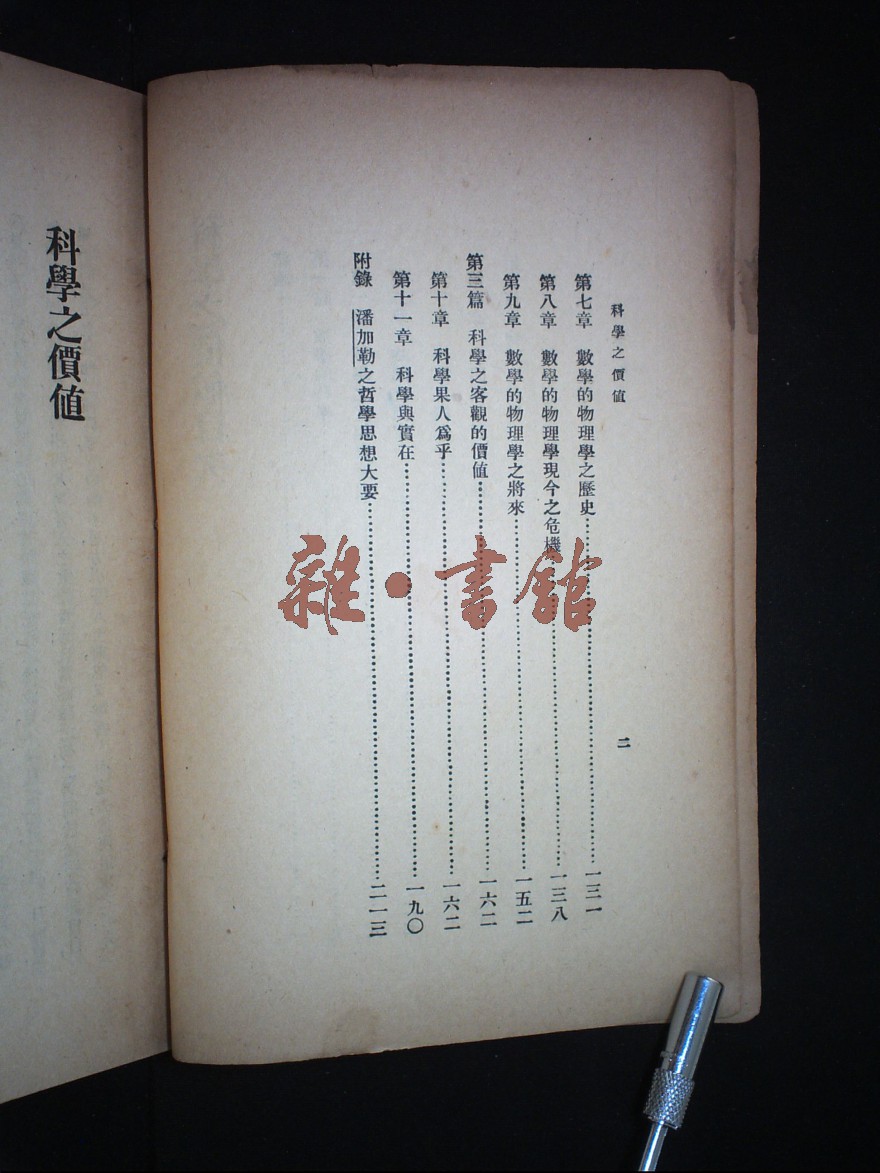 科學之價值
二
第七章 數學的物理學之歷史……一三一
第八章 數學的物理學現今之危機……一三八
第九章 數學的物理學之將來……一五二
第三篇 科學之客觀的價值……一六二
第十章 科學果人爲乎……一六二
第十一章 科學與實在……一九〇
附錄 潘加勒之哲學思想大要……二一三
科學之價値
雜·書館